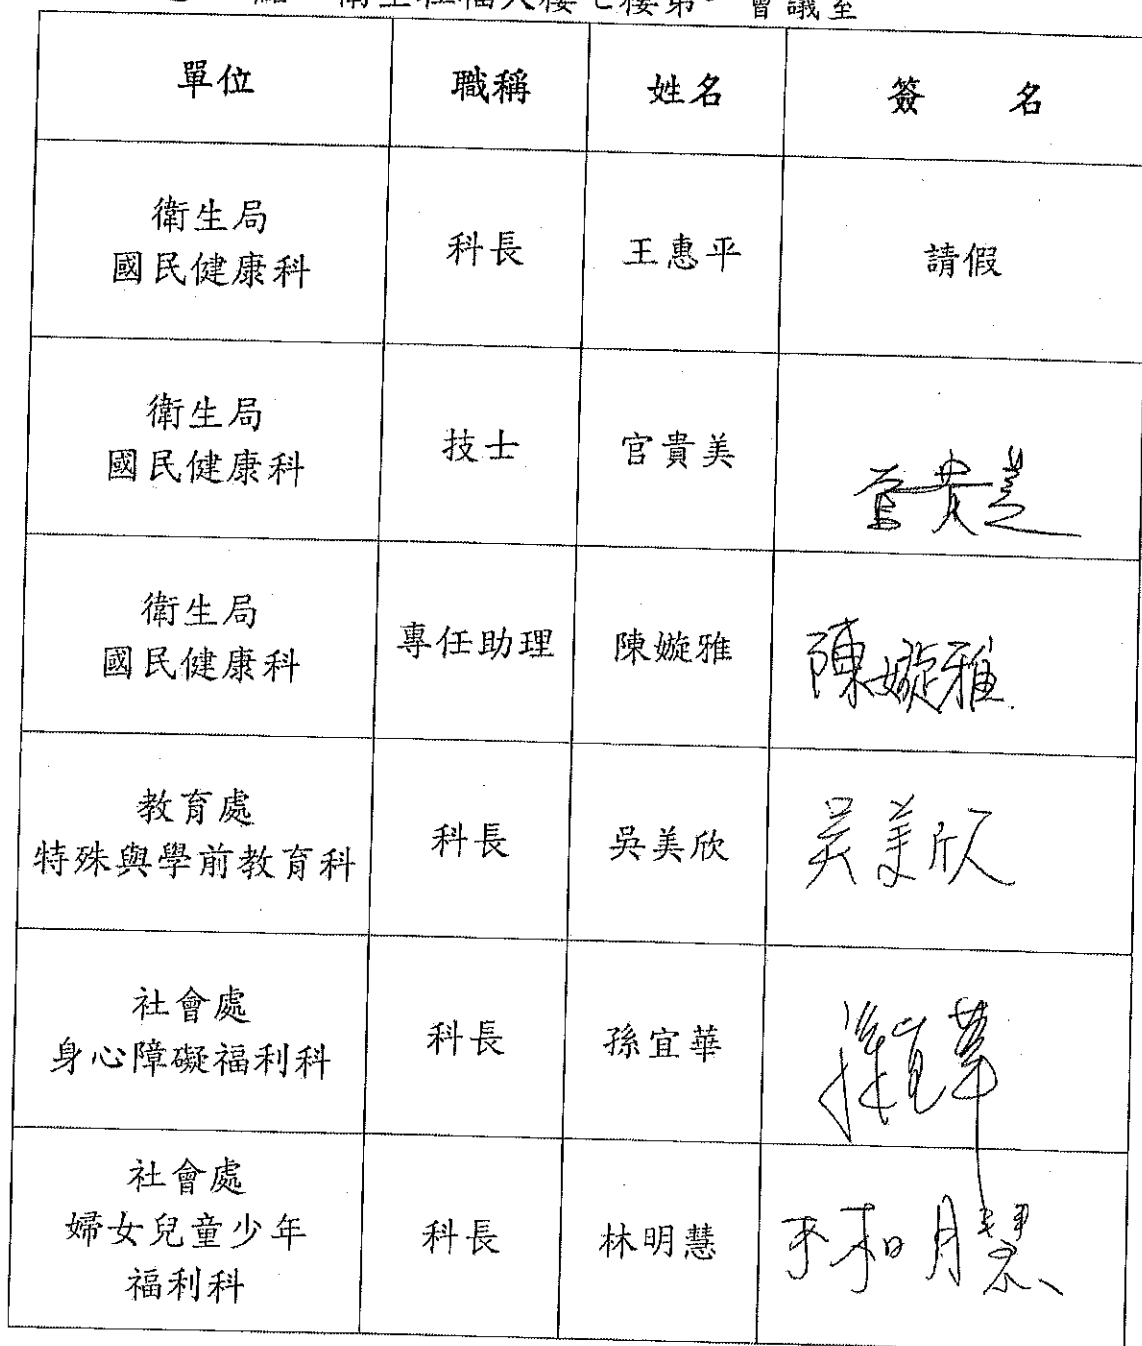 衛生社福大樓七樓第一會議室
單位 職稱 姓名 簽 名
衛生局
國民健康科 科長 王惠平 請假
衛生局
國民健康科 技士 官貴美 官貴美
衛生局
國民健康科 專任助理 陳嫙雅 陳嫙雅
教育處
特殊與學前教育科 科長 吳美欣 吳美欣
社會處
身心障礙福利科 科長 孫宜華 孫宜華
社會處
婦女兒童少年 科長 林明慧 林明慧
福利科